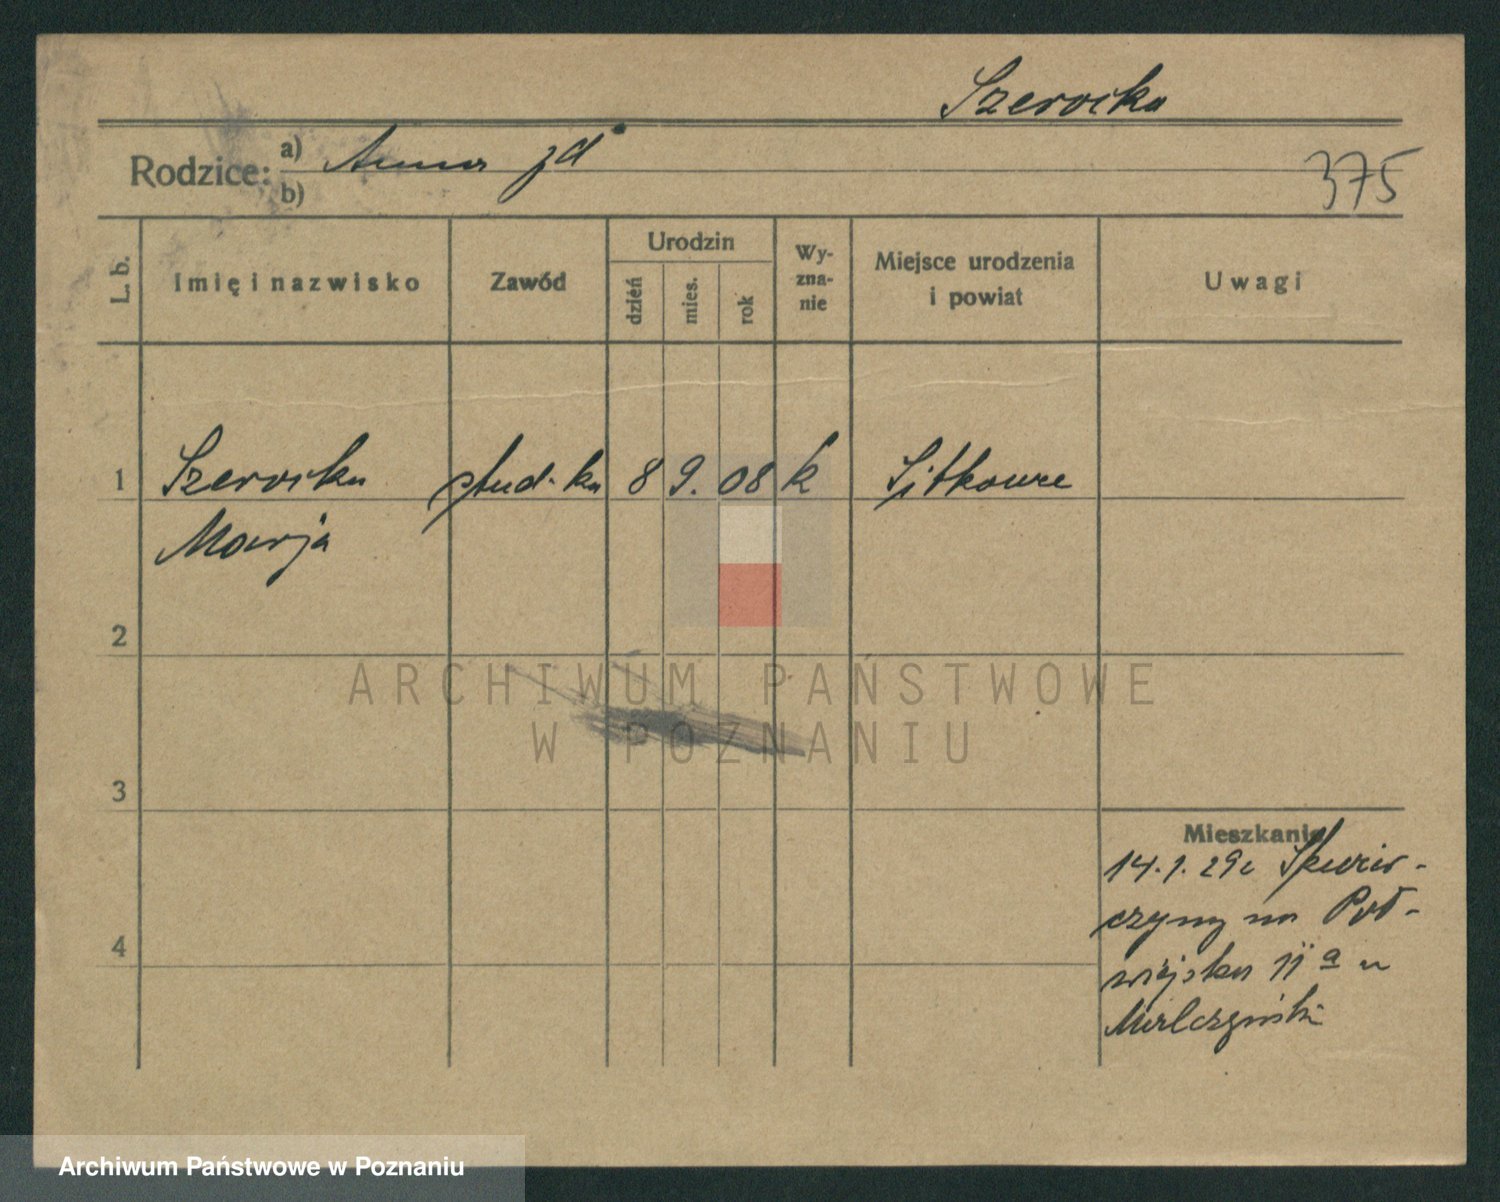 Szerocka
Rodzice: a) Anna zd
b)
375
L. b. Imię i nazwisko Zawód Urodzin dzień mies. rok Wy-zna-nie Miejsce urodzenia i powiat Uwagi
1 Szerocka stud-ka 8 9. 08 k Sitkowce
Marja
2
ARCHIWUM PAŃSTWOWE
W POZNANIU
3
Mieszkanie
14.1.29
czyny na Poł-
4
wiejska 11a u
Archiwum Państwowe w Poznaniu